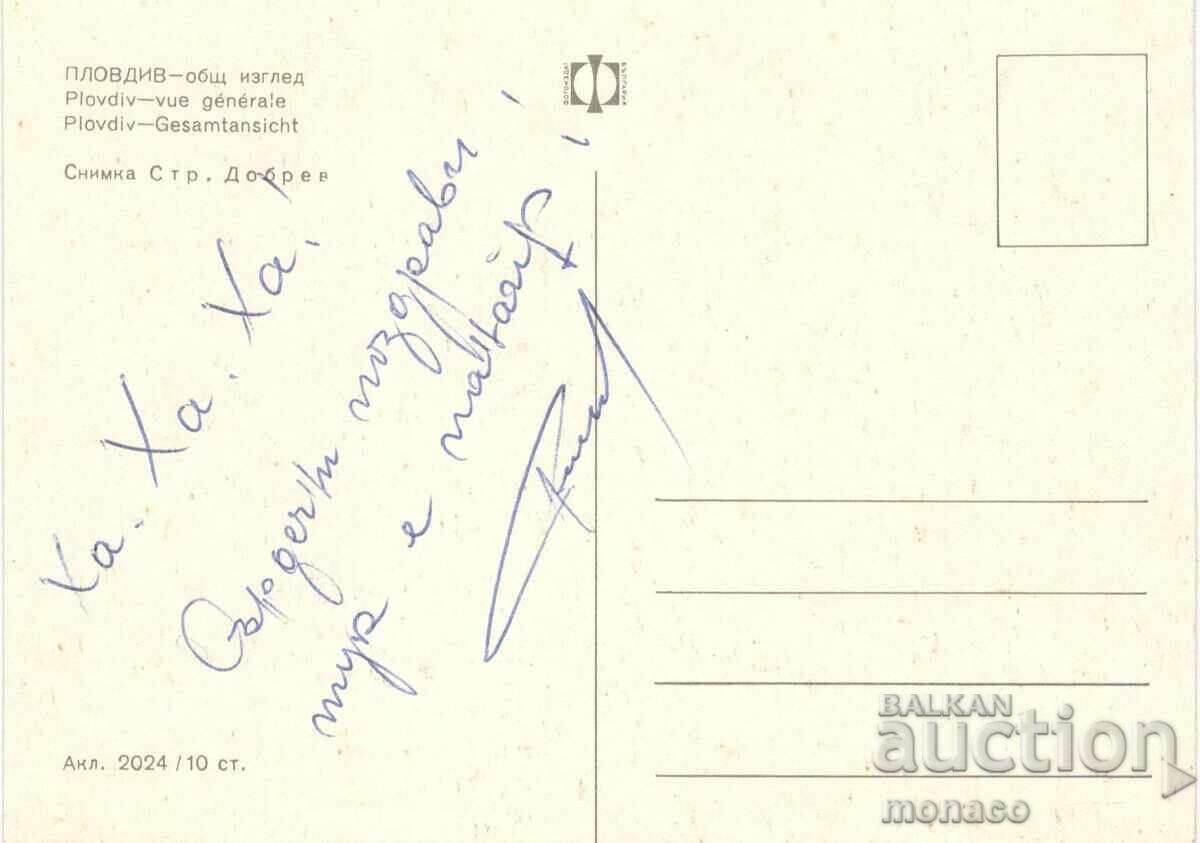 ПЛОВДИВ—общ изглед
Plovdiv—vue générale
Plovdiv—Gesamtansicht
Снимка Стр. Добрев
ФОТОИЗДАТ
БЪЛГАРИЯ
Ха. Ха. Ха. Ха!
Сърдечни поздрави!
тук е панаир!
Акл. 2024/10 ст.
BALKAN
auction
monaco